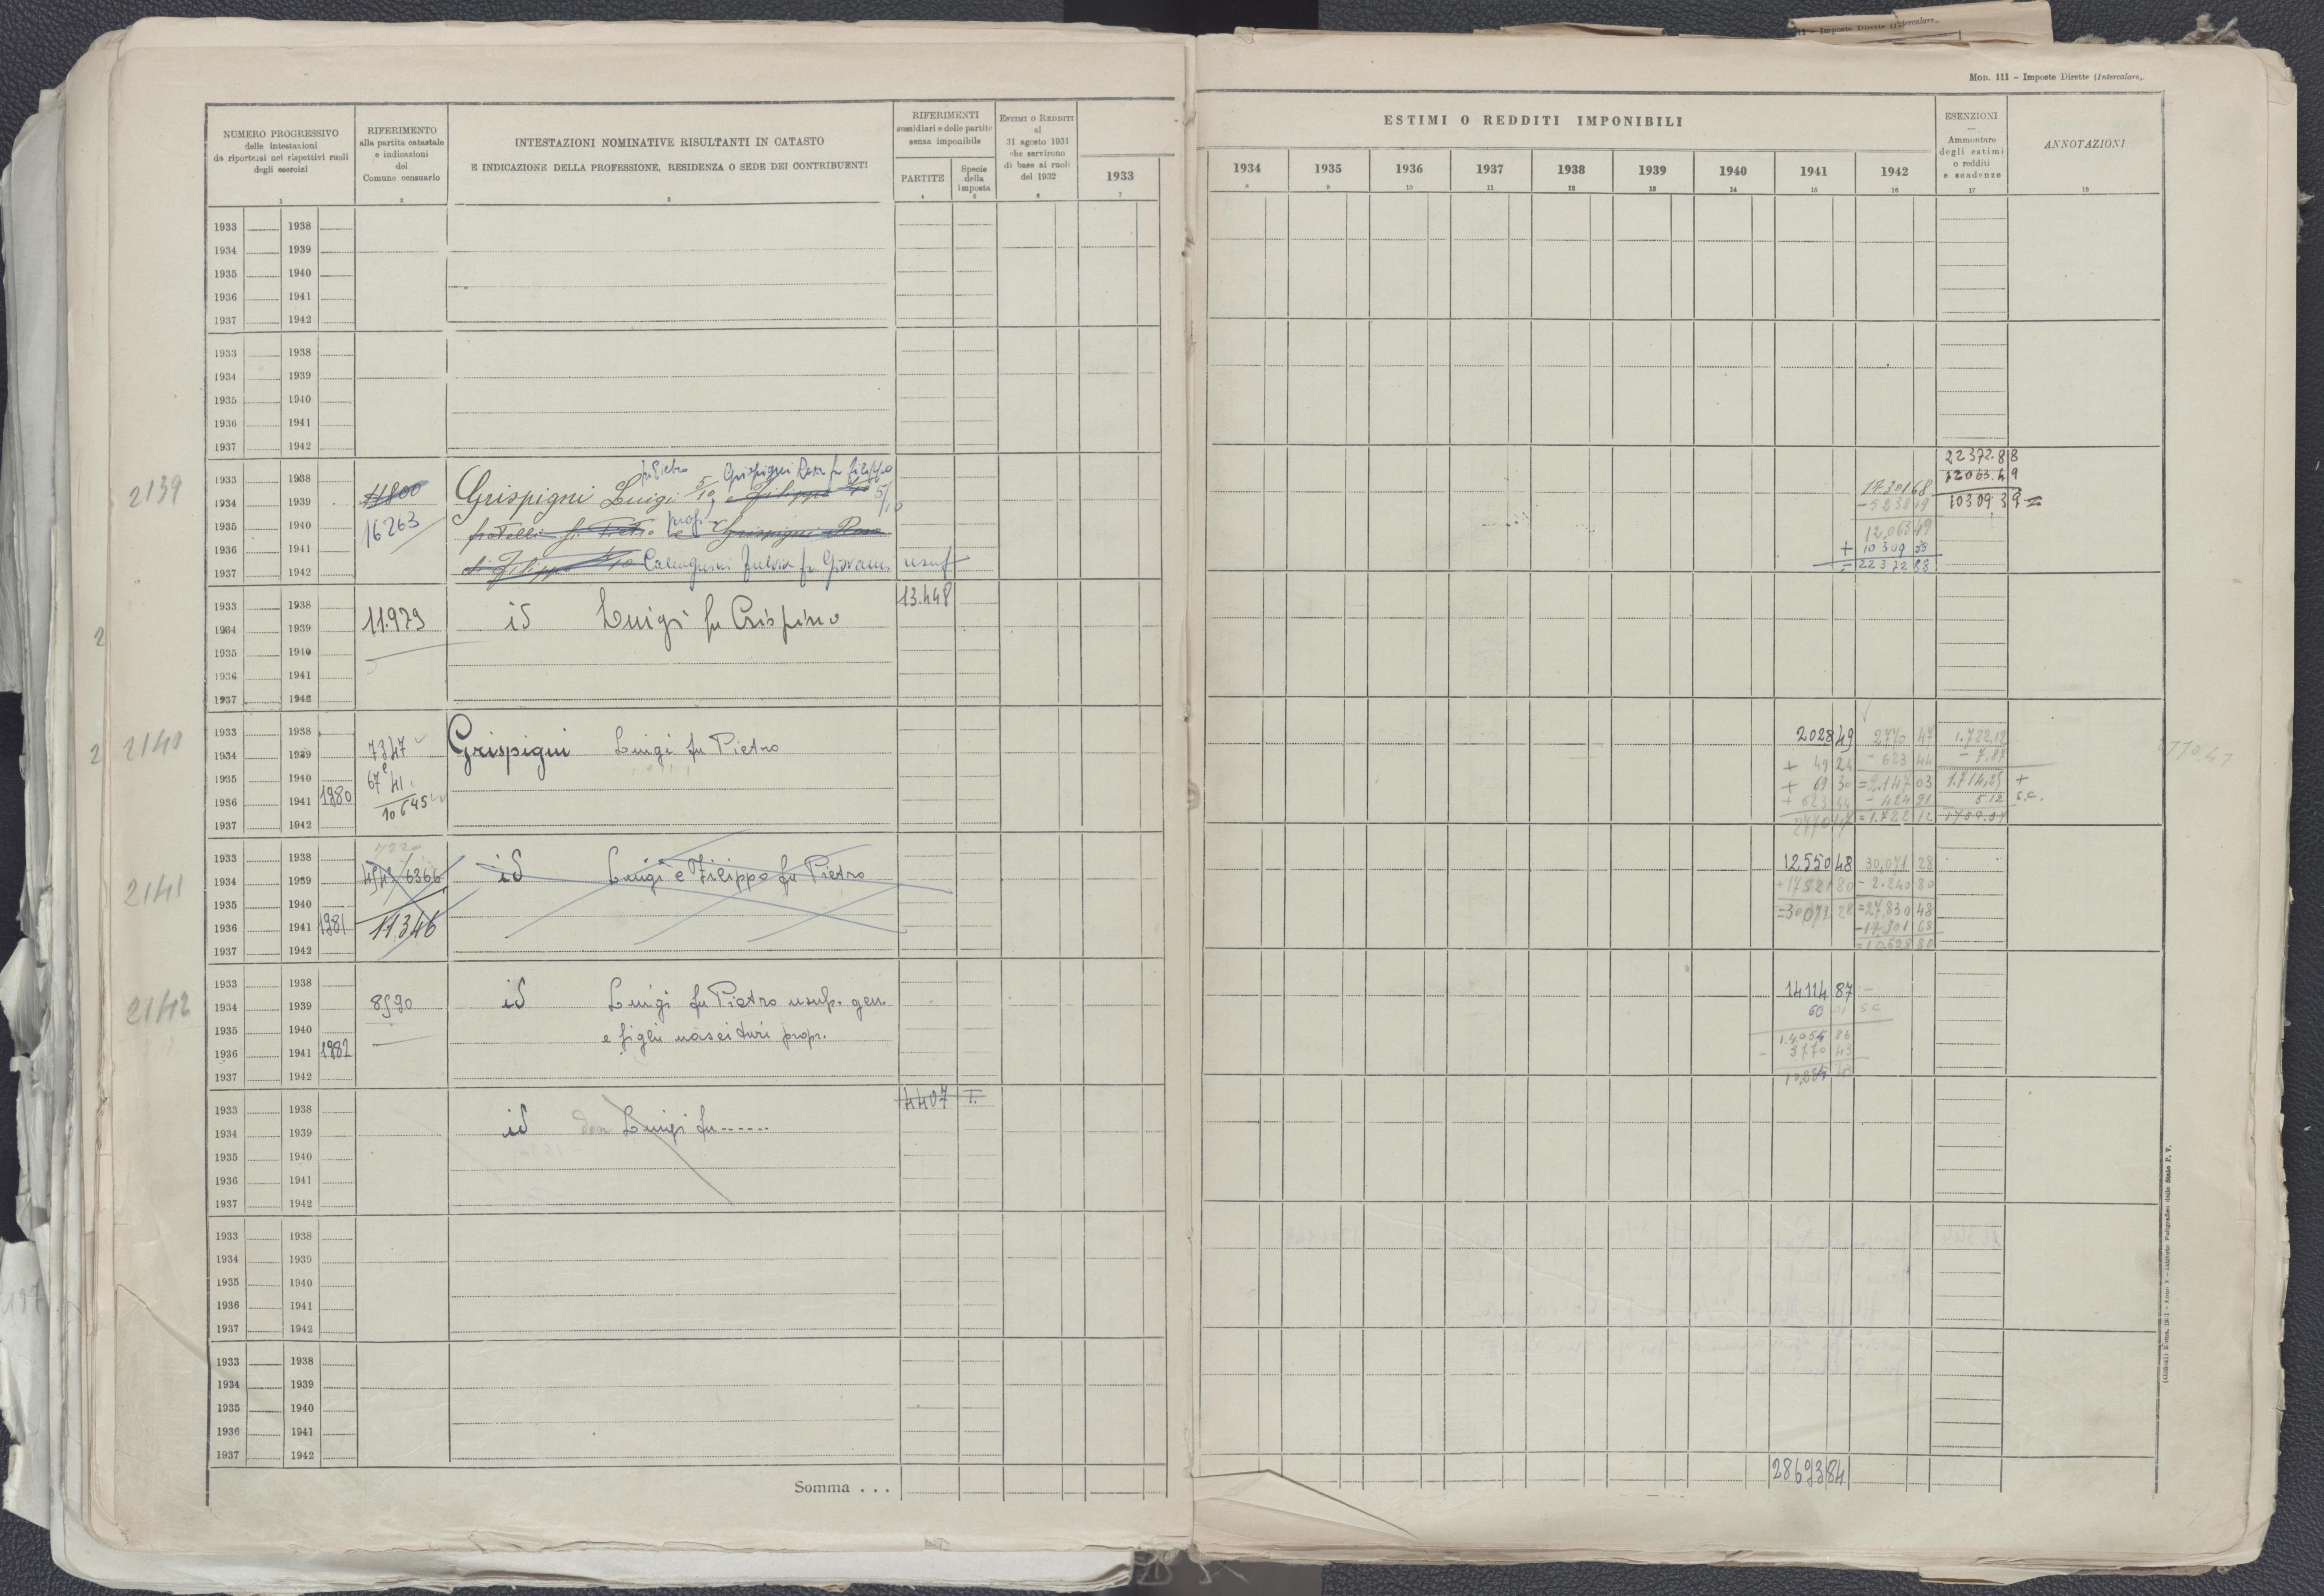 Mod. 111 - Imposte Dirette (Intercalare,
NUMERO PROGRESSIVO
delle intestazioni
da riportarsi nei rispettivi ruoli
degli esercizi
RIFERIMENTO
alla partita catastale
e indicazioni
del
Comune censuario
INTESTAZIONI NOMINATIVE RISULTANTI IN CATASTO
E INDICAZIONE DELLA PROFESSIONE, RESIDENZA O SEDE DEI CONTRIBUENTI
RIFERIMENTI
sussidiari e delle partite
senza imponibile
PARTITE
Specie
della
imposta
Estimi o Redditi
al
31 agosto 1931
che servirono
di base ai ruoli
del 1932
1933
ESTIMI O REDDITI IMPONIBILI
1934 1935 1936 1937 1938 1939 1940 1941 1942
ESENZIONI
Ammontare
degli estimi
o redditi
e scadenze
ANNOTAZIONI
1 2 3 4 5 6 7 8 9 10 11 12 13 14 15 16 17 18
1933 1938
1934 1939
1935 1940
1936 1941
1937 1942
1933 1938
1934 1939
1935 1940
1936 1941
1937 1942
2139
1933 1938
1934 1939
1935 1940
1936 1941
1937 1942
11800
16263
fu Pietro Grispigni Rosa fu Filippo
Grispigni Luigi 5/10, e Filippo 5/10
fratelli fu Pietro propr e Grispigni Rosa
di Filippo Calcagnini Fulvia fu Giovanni usuf
17.301 68
- 5238 19
12,063 49
+ 10309 39
= 22372 88
22372.88
12063.49
10309,39
1933 1938
1934 1939
1935 1940
1936 1941
1937 1942
2
11.979
id Luigi fu Crispino
13.448
2140
2
1933 1938
1934 1939
1935 1940
1936 1941 1980
1937 1942
7347
67 e 41
10645
Grispigni Luigi fu Pietro
2028 49
+ 49 24
+ 69 30
+ 623 44
2770 47
2770 47
- 623 44
= 2.147 03
- 424 91
= 1.722 12
1.722,12
- 7.87
1.714,25 +
5.12 s.c.
2770.47
2141
1933 1938
1934 1939
1935 1940
1936 1941 1981
1937 1942
6366
11346
id Luigi e Filippo fu Pietro
12550 48
+ 17521 80
= 30071 28
30,071 28
- 2.240 80
= 27,830 48
- 17.301 68
= 10,528 80
2142
1933 1938
1934 1939
1935 1940
1936 1941 1982
1937 1942
8590
id Luigi fu Pietro usuf. gen.
e figli nascituri propr.
14114 87
60 01 s c
14.054 86
- 3770 43
10,284 43
1933 1938
1934 1939
1935 1940
1936 1941
1937 1942
id don Luigi fu ------
4407 T.
1933 1938
1934 1939
1935 1940
1936 1941
1937 1942
1933 1938
1934 1939
1935 1940
1936 1941
1937 1942
Somma . . .
28693 84